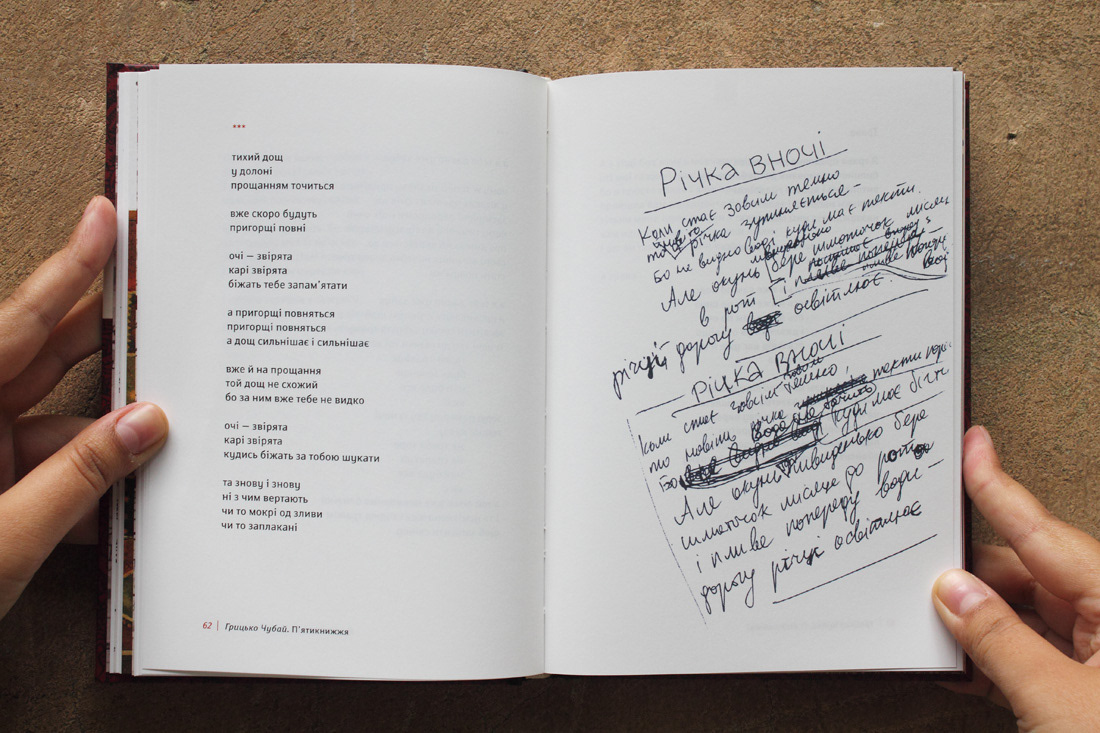 ***
тихий дощ
у долоні
прощанням точиться
вже скоро будуть
пригорщі повні
очі — звірята
карі звірята
біжать тебе запам’ятати
а пригорщі повняться
пригорщі повняться
а дощ сильнішає і сильнішає
вже й на прощання
той дощ не схожий
бо за ним вже тебе не видко
очі — звірята
карі звірята
кудись біжать за тобою шукати
та знову і знову
ні з чим вертають
чи то мокрі од зливи
чи то заплакані
62 | Грицько Чубай. П’ятикнижжя
Річка вночі
Коли стає зовсім темно
то річка зупиняється —
Бо не видно воді куди має текти.
Але окунь бере шматочок місяця
в рот і
річці дорогу освітлює.
Річка вночі
коли стає зовсім темно,
то навіть річка текти
Бо куди має бігти
Але окунь швиденько бере
шматочок місяце до рота
і пливе попереду води —
дорогу річці освітлює